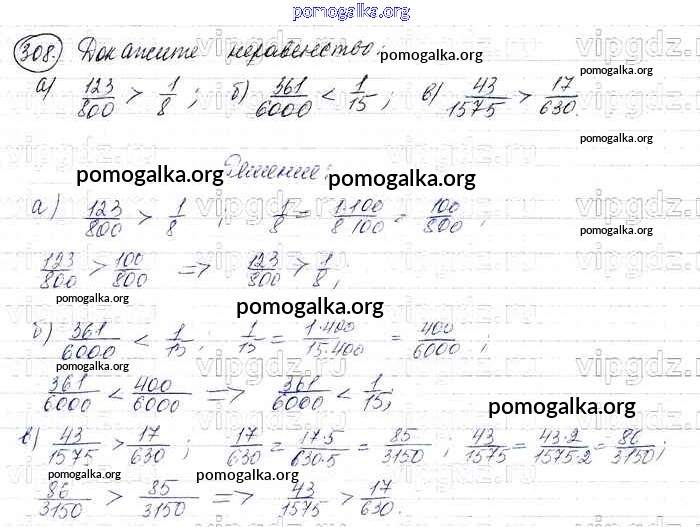 pomogalka.org
308. Докажите неравенство: pomogalka.org vipgdz.ru
pomogalka.org
а) 123/800 > 1/8 ; б) 361/6000 < 1/15 ; в) 43/1575 > 17/630.
vipgdz.ru pomogalka.org
Решение:
pomogalka.org pomogalka.org
а) 123/800 > 1/8 ; 1/8 = 1·100/8·100 = 100/800 ;
vipgdz.ru vipgdz.ru
pomogalka.org
123/800 > 100/800 => 123/800 > 1/8 ;
pomogalka.org pomogalka.org
vipgdz.ru vipgdz.ru
б) 361/6000 < 1/15 ; 1/15 = 1·400/15·400 = 400/6000 ;
pomogalka.org
361/6000 < 400/6000 => 361/6000 < 1/15 ;
pomogalka.org
в) 43/1575 > 17/630 ; 17/630 = 17·5/630·5 = 85/3150 ; 43/1575 = 43·2/1575·2 = 86/3150 ;
pomogalka.org pomogalka.org
86/3150 > 85/3150 => 43/1575 > 17/630.